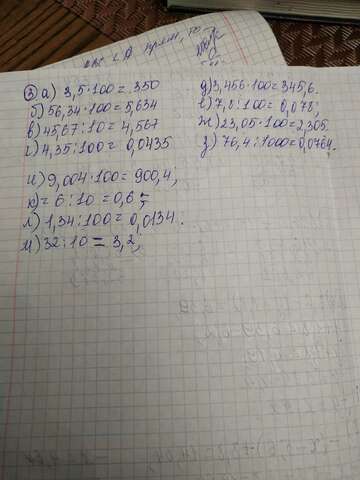 ③ а) 3,5·100=350
б) 56,34·100=5,634
в) 45,67:10=4,567
г) 4,35:100=0,0435
д) 3,456·100=345,6.
е) 7,8:100=0,078;
ж) 23,05·100=2,305.
з) 76,4:1000=0,0764.
и) 9,004·100=900,4;
к) 6:10=0,6;
л) 1,34:100=0,0134.
м) 32:10=3,2;